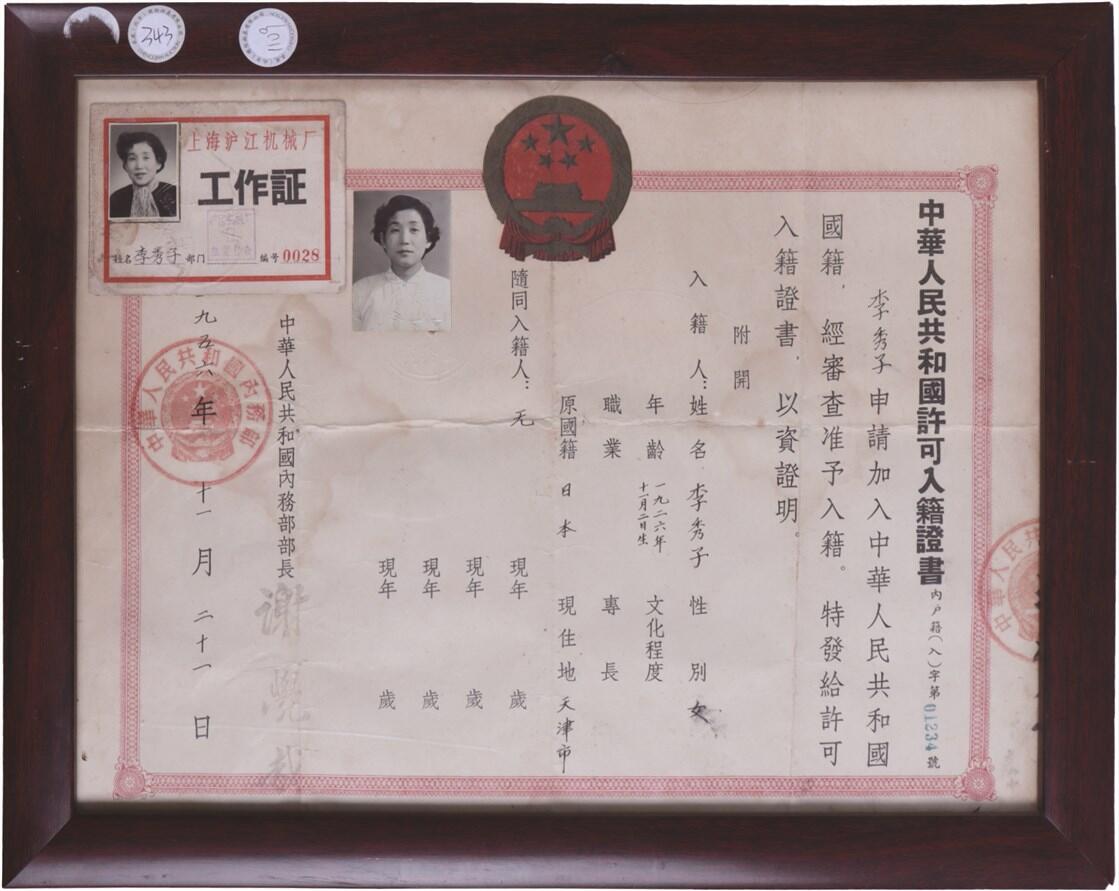 343
上海沪江机械厂
工作証
姓名 李秀子 部门 编号 0028
中華人民共和國許可入籍證書
內戶籍(入)字第01234號
李秀子申請加入中華人民共和國
國籍，經審查准予入籍。特發給許可
入籍證書，以資證明。
附開
入籍人：姓名 李秀子 性別 女
年齡 一九二六年十一月二日生 文化程度
職業 專長
原國籍 日本 現住地 天津市
隨同入籍人：无
現年 歲
現年 歲
現年 歲
現年 歲
中華人民共和國內務部部長
謝覺哉
九五六年十一月二十一日
中華人民共和國內務部
中華人民共